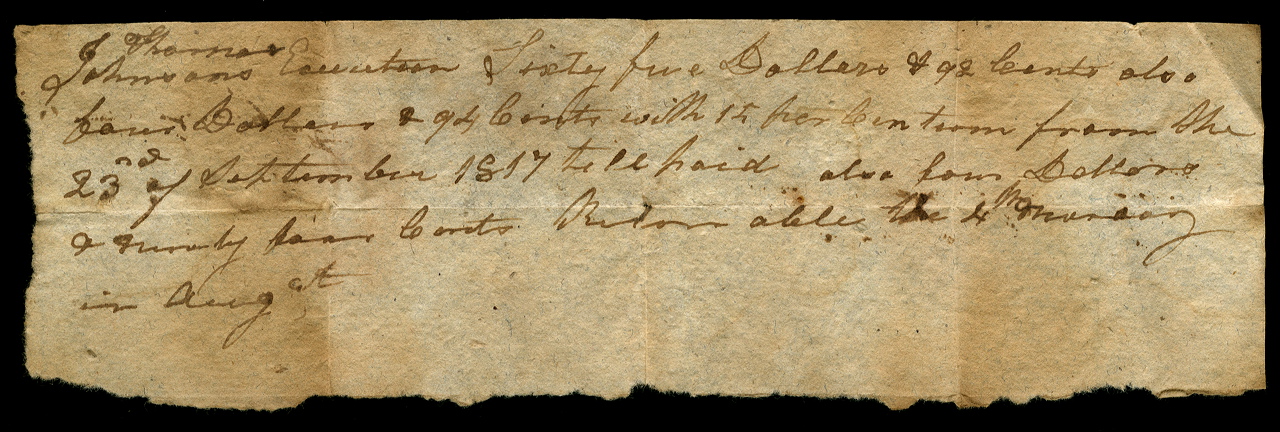 J Thomas
Johnsons Execution Sixty five Dollars & 92 Cents also
four Dollars & 94 Cents with 15 per Centum from the
23rd of September 1817 till paid also four Dollars
& ninety four Cents Return able the 4th Monday
in Augst